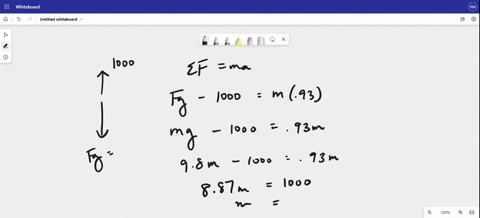 Whiteboard
Untitled whiteboard
1000
ΣF = ma
Fg - 1000 = m(.93)
mg - 1000 = .93m
Fg =
9.8m - 1000 = .93m
8.87m = 1000
m =
100%